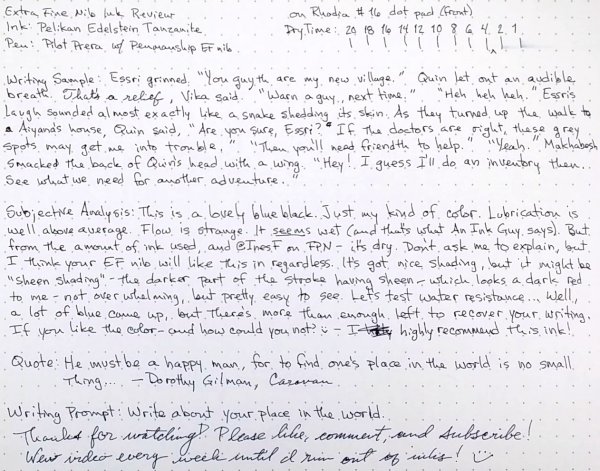 Extra Fine Nib Ink Review
on Rhodia #16 dot pad (front)
Ink: Pelikan Edelstein Tanzanite
Dry Time: 20 18 16 14 12 10 8 6 4 2 1
Pen: Pilot Prera w/ Penmanship EF nib
Writing Sample: Essri grinned. "You guyth are my new village." Quin let out an audible
breath. That's a relief, Vika said. "Warn a guy, next time." "Heh heh heh." Essri's
laugh sounded almost exactly like a snake shedding its skin. As they turned up the walk to
Aiyana's house, Quin said, "Are you sure, Essri?" "If the doctors are right, these grey
spots may get me into trouble," "Then you'll need friendth to help." "Yeah." Makhabesh
smacked the back of Quin's head with a wing. "Hey! I guess I'll do an inventory then..
See what we need for another adventure."
Subjective Analysis: This is a lovely blue black. Just my kind of color. Lubrication is
well above average. Flow is strange. It seems wet (and that's what An Ink Guy says). But
from the amount of ink used, and @InesF on FPN - it's dry. Don't ask me to explain, but
I think your EF nib will like this in regardless. It's got nice shading, but it might be
"sheen shading" - the darker part of the stroke having sheen - which looks a dark red
to me - not overwhelming, but pretty easy to see. Let's test water resistance... Well,
a lot of blue came up, but there's more than enough left to recover your writing.
If you like the color - and how could you not? :) - I highly recommend this ink!
Quote: He must be a happy man, for to find one's place in the world is no small
thing... - Dorothy Gilman, Caravan
Writing Prompt: Write about your place in the world.
Thanks for watching! Please like, comment, and subscribe!
New video every week until I run out of inks! :)